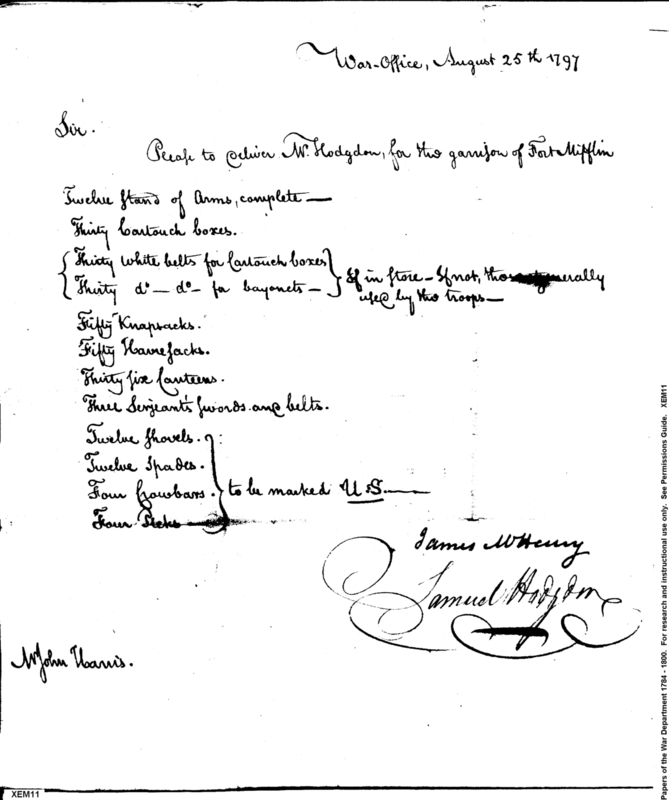 War-Office, August 25th 1797
Sir.
Please to deliver Mr. Hodgdon, for the garrison of Fort Mifflin
Twelve Stand of Arms, complete —
Thirty Cartouch boxes.
Thirty white belts for Cartouch boxes
Thirty do — do — for bayonets —
If in store — If not, those generally
used by the troops —
Fifty Knapsacks.
Fifty Haversacks.
Thirty six Canteens.
Three Serjeant's swords and belts.
Twelve Shovels.
Twelve Spades.
Four Crowbars.
Four Picks
to be marked U.S —
James McHenry
Samuel Hodgdon
Mr John Harris.
Papers of the War Department 1784 - 1800. For research and instructional use only. See Permissions Guide. XEM11
XEM11